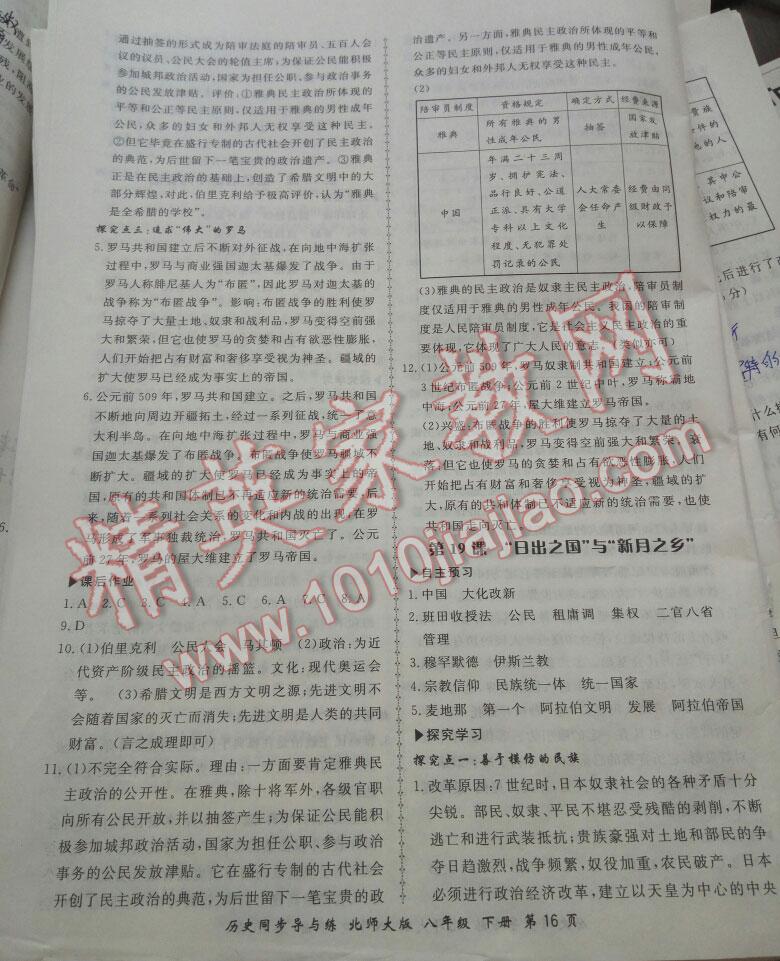 通过抽签的形式成为陪审法庭的陪审员、五百人会
议的议员、公民大会的轮值主席;为保证公民能积极
参加城邦政治活动,国家为担任公职、参与政治事务
的公民发放津贴。评价:①雅典民主政治所体现的
平等和公正等民主原则,仅适用于雅典的男性成年
公民,众多的妇女和外邦人无权享受这种民主。
②但它毕竟在盛行专制的古代社会开创了民主政治
的典范,为后世留下一笔宝贵的政治遗产。③雅典
正是在民主政治的基础上,创造了希腊文明中的大
部分辉煌,对此,伯里克利给予极高评价,认为“雅典
是全希腊的学校”。
探究点三:追求“伟大”的罗马
5.罗马共和国建立后不断对外征战,在向地中海扩张
过程中,罗马与商业强国迦太基爆发了战争。由于
罗马人称腓尼基人为“布匿”,因此罗马对迦太基的
战争称为“布匿战争”。影响:布匿战争的胜利使罗
马掠夺了大量土地、奴隶和战利品,罗马变得空前强
大和繁荣,但它也使罗马的贪婪和占有欲恶性膨胀,
人们开始把占有财富和奢侈享受视为神圣。疆域的
扩大使罗马已经成为事实上的帝国。
6.公元前509年,罗马共和国建立。之后,罗马共和国
不断地向周边开疆拓土,经过一系列征战,统一了意
大利半岛。在向地中海扩张过程中,罗马与商业强
国迦太基爆发了布匿战争。布匿战争使罗马疆域不
断扩大。疆域的扩大使罗马已经成为事实上的帝
国,原有的共和国体制已不再适应新的统治需要,后
来,随着一系列社会关系的变化和内战的出现,在罗
马形成了军事独裁统治,罗马共和国灭亡了。公元
前27年,罗马的屋大维建立了罗马帝国。
▶课后作业
1.A 2.C 3.C 4.A 5.C 6.A 7.C 8.A
9.D
10.(1)伯里克利 公民大会 马其顿 (2)政治:为近
代资产阶级民主政治的摇篮。文化:现代奥运会
等。 (3)希腊文明是西方文明之源;先进文明不
会随着国家的灭亡而消失;先进文明是人类的共同
财富。(言之成理即可)
11.(1)不完全符合实际。理由:一方面要肯定雅典民
主政治的公开性。在雅典,除十将军外,各级官职
向所有公民开放,并以抽签产生;为保证公民能积
极参加城邦政治活动,国家为担任公职、参与政治
事务的公民发放津贴。它在盛行专制的古代社会
开创了民主政治的典范,为后世留下一笔宝贵的政
治遗产。另一方面,雅典民主政治所体现的平等和
公正等民主原则,仅适用于雅典的男性成年公民,
众多的妇女和外邦人无权享受这种民主。
(2)
陪审员制度 资格规定 确定方式 经费来源
雅典 所有雅典的男性成年公民 抽签 国家发放津贴
中国 年满二十三周岁、拥护宪法、品行良好、公道正派、具有大学专科以上文化程度、无犯罪处罚记录的公民 人大常委会任命产生 经费由同级财政予以保障
(3)雅典的民主政治是奴隶主民主政治,陪审员制
度仅适用于雅典的男性成年公民。我国的陪审制
度是人民陪审员制度,它是社会主义民主政治的重
要体现,它体现了广大人民的意志。(类似亦可)
12.(1)公元前509年,罗马奴隶制共和国建立;公元前
3世纪布匿战争;公元前2世纪中叶,罗马称霸地
中海;公元前27年,屋大维建立罗马帝国。
(2)兴盛:布匿战争的胜利使罗马掠夺了大量的土
地、奴隶和战利品,罗马变得空前强大和繁荣。衰
落:但它也使罗马的贪婪和占有欲恶性膨胀,人们
开始把占有财富和奢侈享受视为神圣;疆域的扩
大,原有的共和体制已不适应新的统治需要,也使
共和国走向灭亡。
第19课 “日出之国”与“新月之乡”
▶自主预习
1.中国 大化改新
2.班田收授法 公民 租庸调 集权 二官八省
管理
3.穆罕默德 伊斯兰教
4.宗教信仰 民族统一体 统一国家
5.麦地那 第一个 阿拉伯文明 发展 阿拉伯帝国
▶探究学习
探究点一:善于模仿的民族
1.改革原因:7世纪时,日本奴隶社会的各种矛盾十分
尖锐。部民、奴隶、平民不堪忍受残酷的剥削,不断
逃亡和进行武装抵抗;贵族豪强对土地和部民的争
夺日趋激烈,战争频繁,奴役加重,农民破产。日本
必须进行政治经济改革,建立以天皇为中心的中央
历史同步导与练 北师大版 八年级 下册 第16页
精英家教网
www.1010jiajiao.com